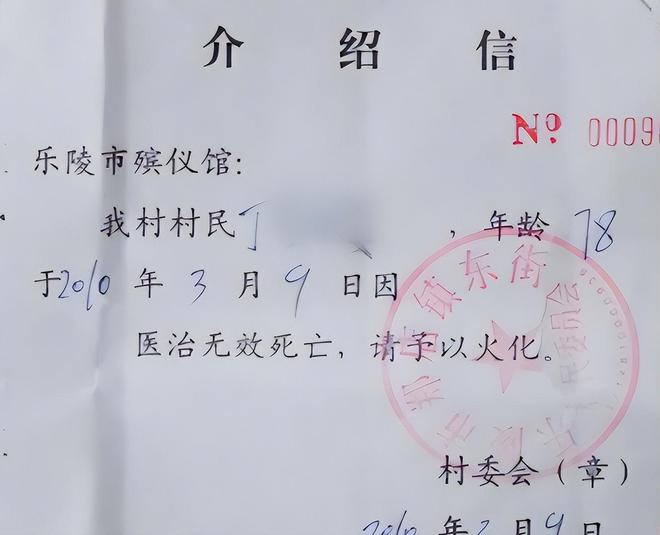 介绍信
No 0009
乐陵市殡仪馆:
我村村民丁 ，年龄 78
于2010年3月9日因
医治无效死亡，请予以火化。
乐陵市郑店镇东街村民委员会
村委会（章）
2010年3月9日